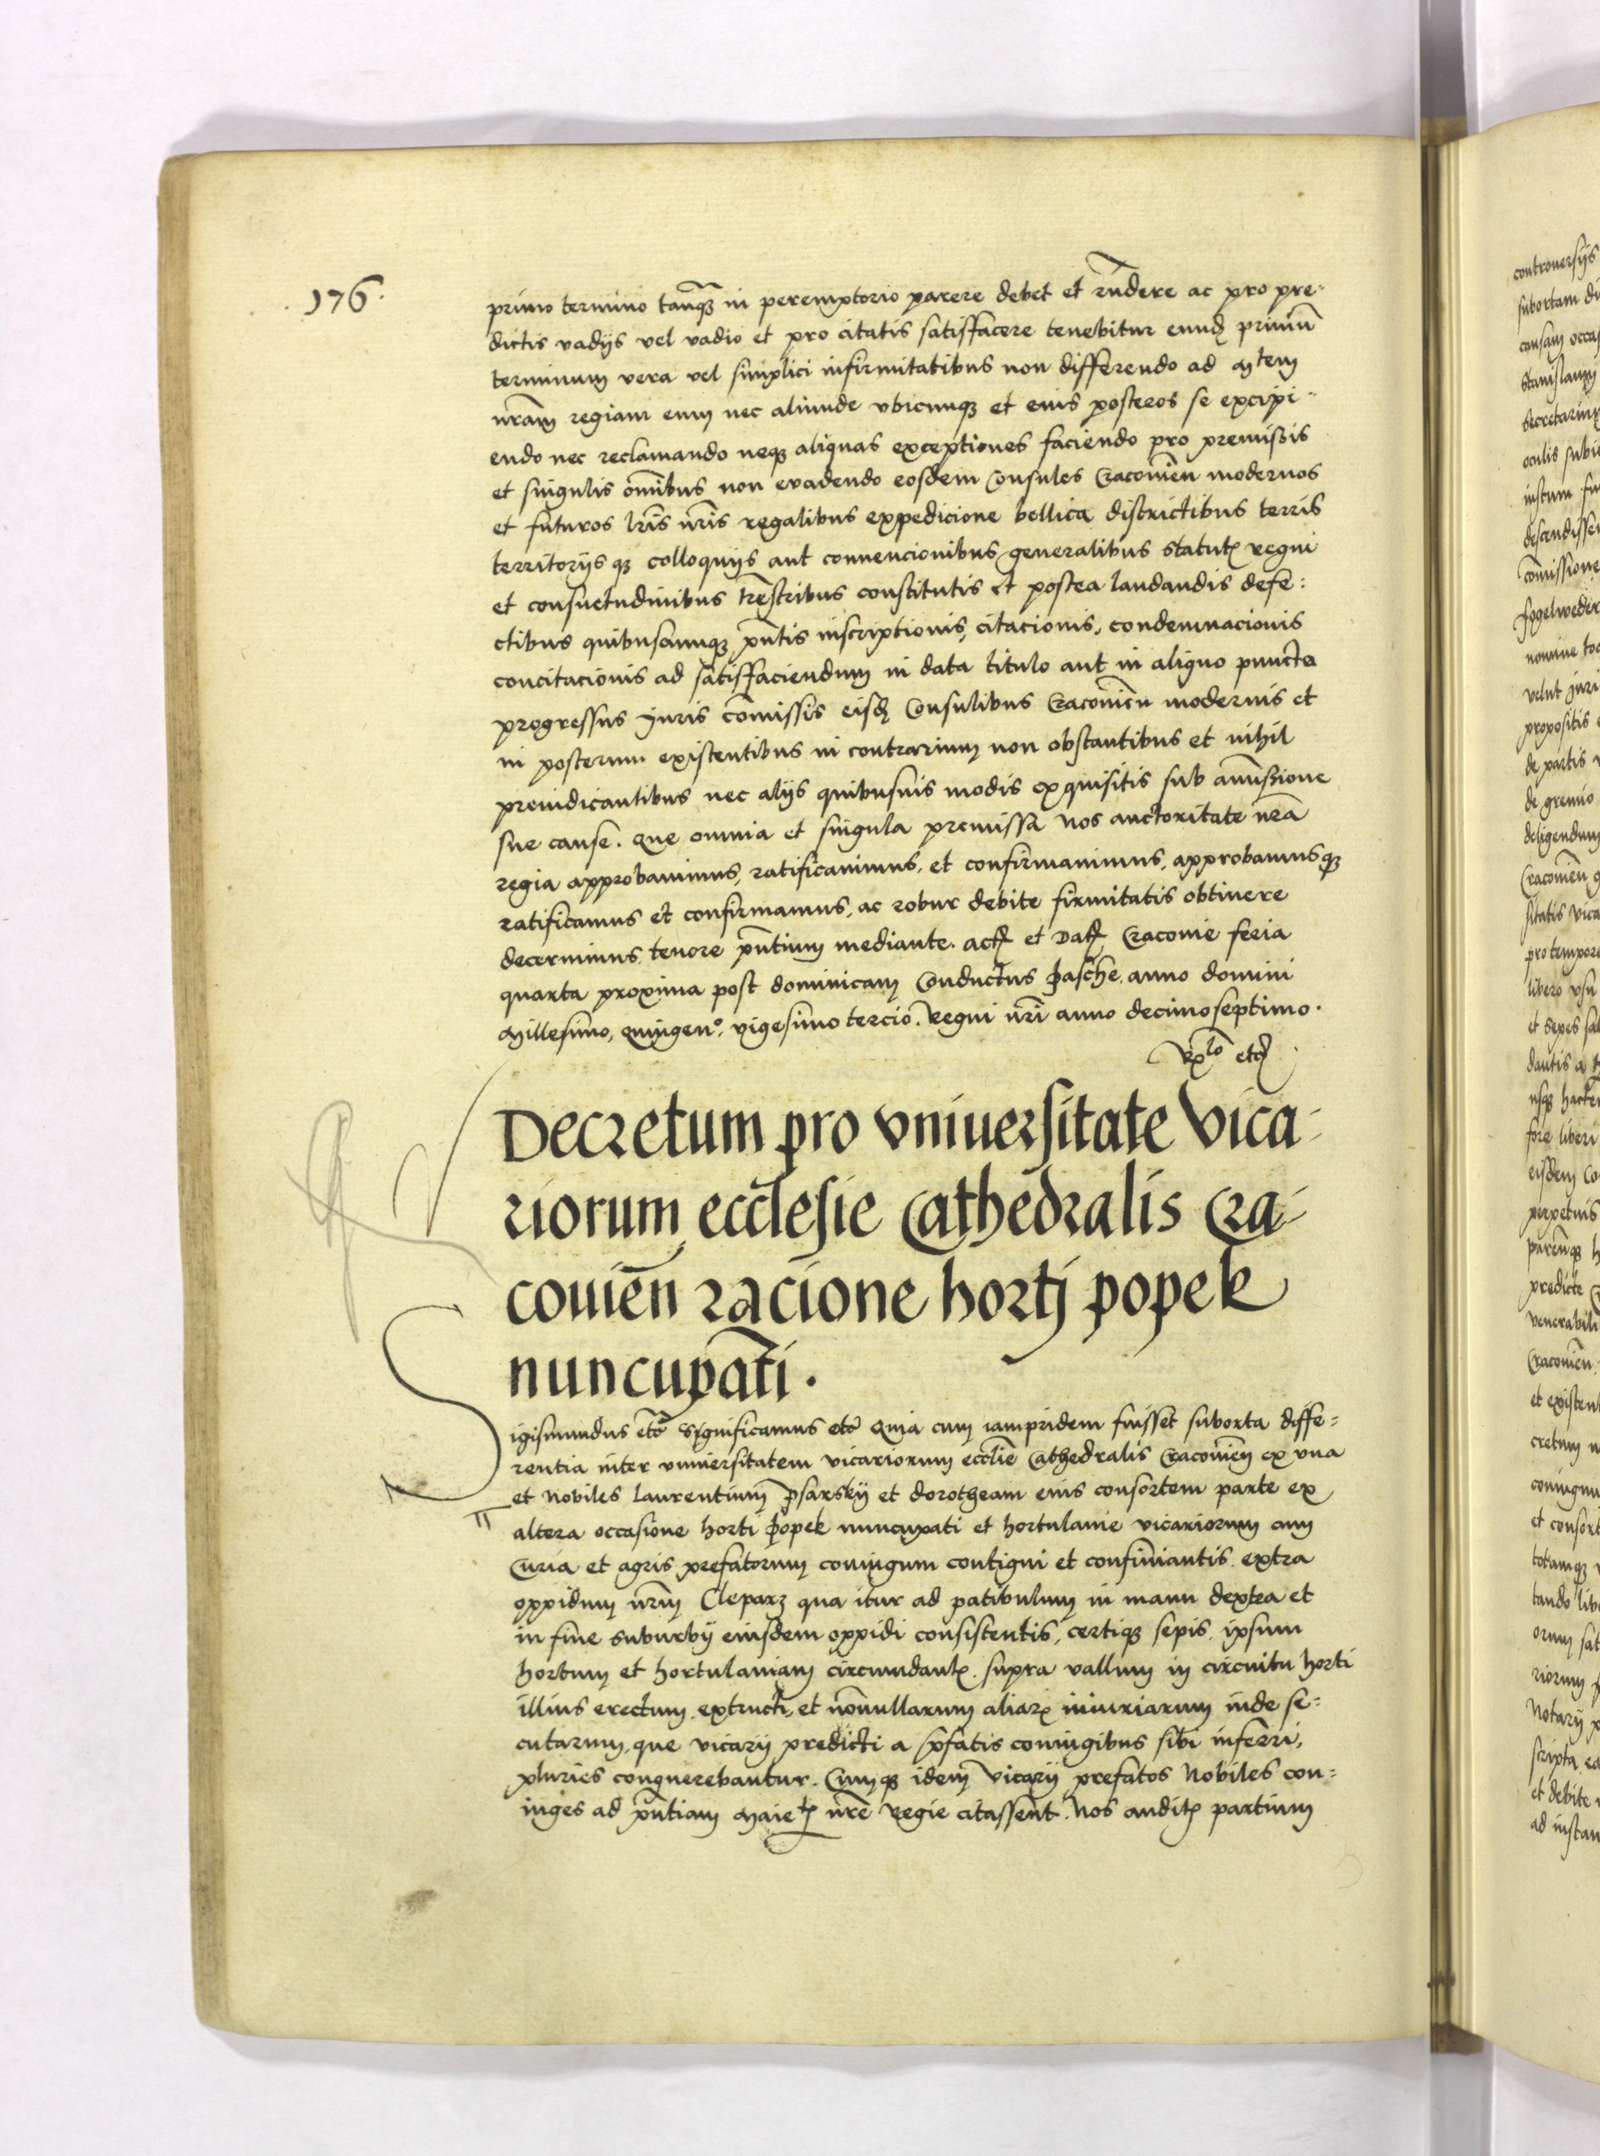 176
primo termino tanq̃ꝫ in peremptorio parere debet et rñdere ac pro pre-
dictis vadijs vel vadio et pro citatis satisfacere tenebitur eundꝫ primũ
terminum vera vel simplici infirmitatibus non differendo ad Mtem
nrãm regiam eum nec aliunde vbicunqꝫ et eius posteros se excipi-
endo nec reclamando neqꝫ aliquas exceptiones faciendo pro premissis
et singulis õmibus non evadendo eosdem Consules Cracouieñ modernos
et futuros lrĩs nrĩs regalibus expedicione bellica districtibus terris
territorijs qꝫ colloquijs aut conuencionibus generalibus statutꝭ regni
et consuetudinibus trẽstribus constitutis et postea laudandis defe-
ctibus quibuscumqꝫ pñtis inscriptionis, citacionis, condemnacionis
concitacionis ad satisfaciendum in data titulo aut in aliquo puncto
progressus Juris cõmissis eisdꝫ Consulibus Cracouieñ modernis et
in posterum existentibus in contrarium non obstantibus et nihil
preiudicantibus nec alijs quibusuis modis exquisitis sub amissione
sue cause. Que omnia et singula premissa nos auctoritate nrã
regia approbauimus, ratificauimus, et confirmauimus, approbamusqꝫ
ratificamus et confirmamus, ac robur debite firmitatis obtinere
decernimus tenore pñtium mediante. Actꝭ et Datꝭ Cracouie feria
quarta proxima post dominicam Conductus Pasche anno domini
Millesimo, quingenº, vigesimo tercio. Regni nrĩ anno decimoseptimo.
Rlo etc
Decretum pro vniuersitate vica-
riorum ecclesie Cathedralis Cra-
couieñ racione hortj popek
nuncupati.
Sigismundus etc Significamus etc Quia cum iampridem fuisset suborta diffe-
rentia inter vniuersitatem vicariorum ecclie Cathedralis Cracouieñ ex vna
et Nobiles Laurentium Psarskij et dorotheam eius consortem parte ex
altera occasione horti Popek nuncupati et hortulanie vicariorum cum
Curia et agris prefatorum coniugum contigui et confiniantis extra
oppidum nrũm Cleparz qua itur ad patibulum in manu dextra et
in fine suburbij eiusdem oppidi consistentis, certiqꝫ sepis ipsum
hortum et hortulaniam circumdantꝭ supra vallum in circuitu horti
illius erectum extructi, et nõnullarum aliarꝭ iniuriarum inde se-
cutarum, que vicarij predicti a p̃fatis coniugibus sibi inferri,
pluries conquerebantur. Cumqꝫ idem vicarij prefatos Nobiles con-
iuges ad pñtiam Maietꝭ nrẽ Regie citassent. Nos auditꝭ partium